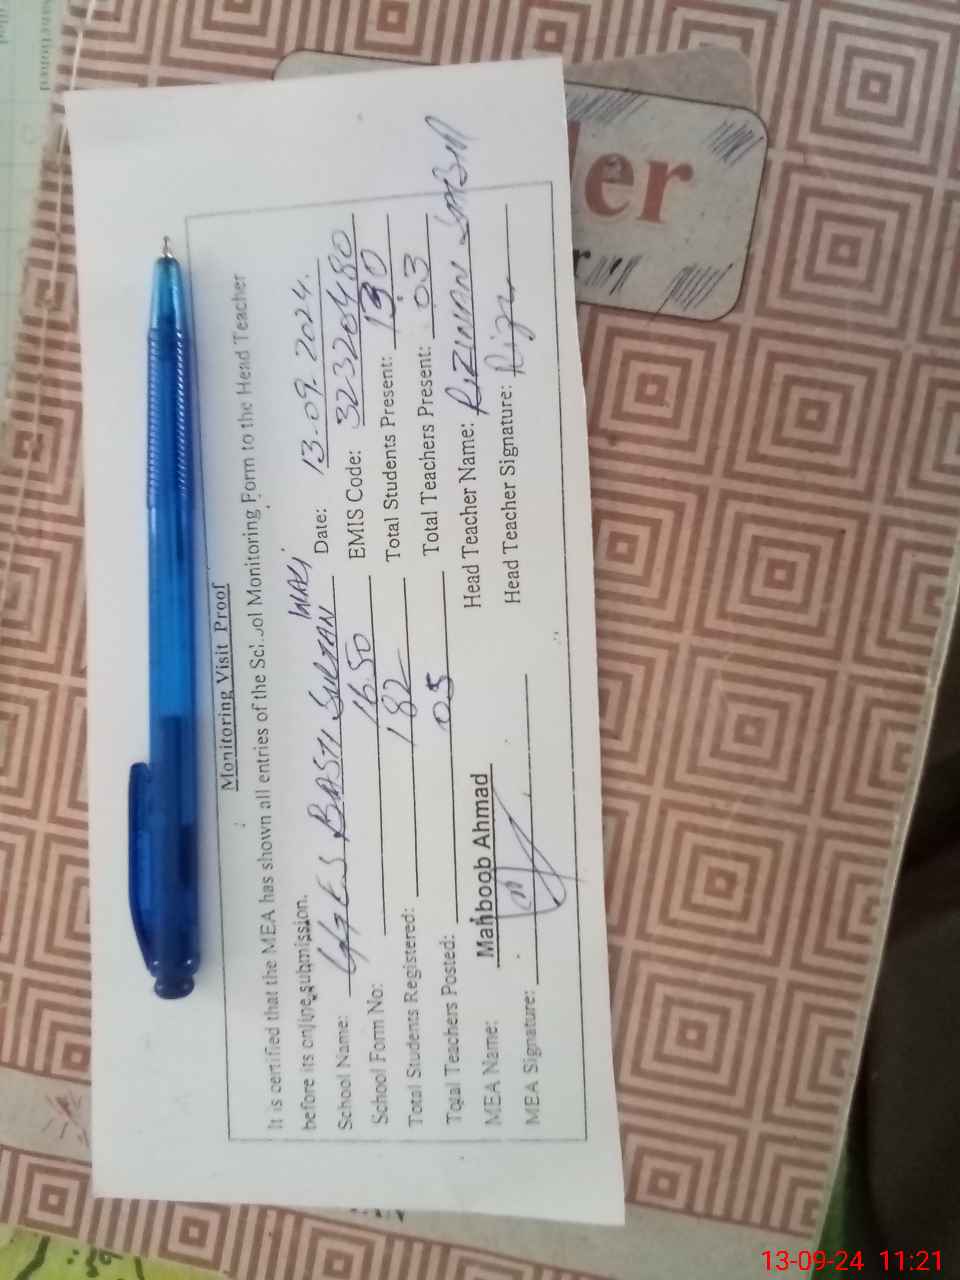 Monitoring Visit Proof
It is certified that the MEA has shown all entries of the School Monitoring Form to the Head Teacher
before its online submission.
School Name: GGES BASTI SULTAN WALI Date: 13.09.2024.
School Form No: 1650 EMIS Code: 32320480
Total Students Registered: 182 Total Students Present: 130
Total Teachers Posted: 05 Total Teachers Present: 03
MEA Name: Mahboob Ahmad Head Teacher Name: RIZWAN
MEA Signature: Head Teacher Signature:
er
r
13-09-24 11:21